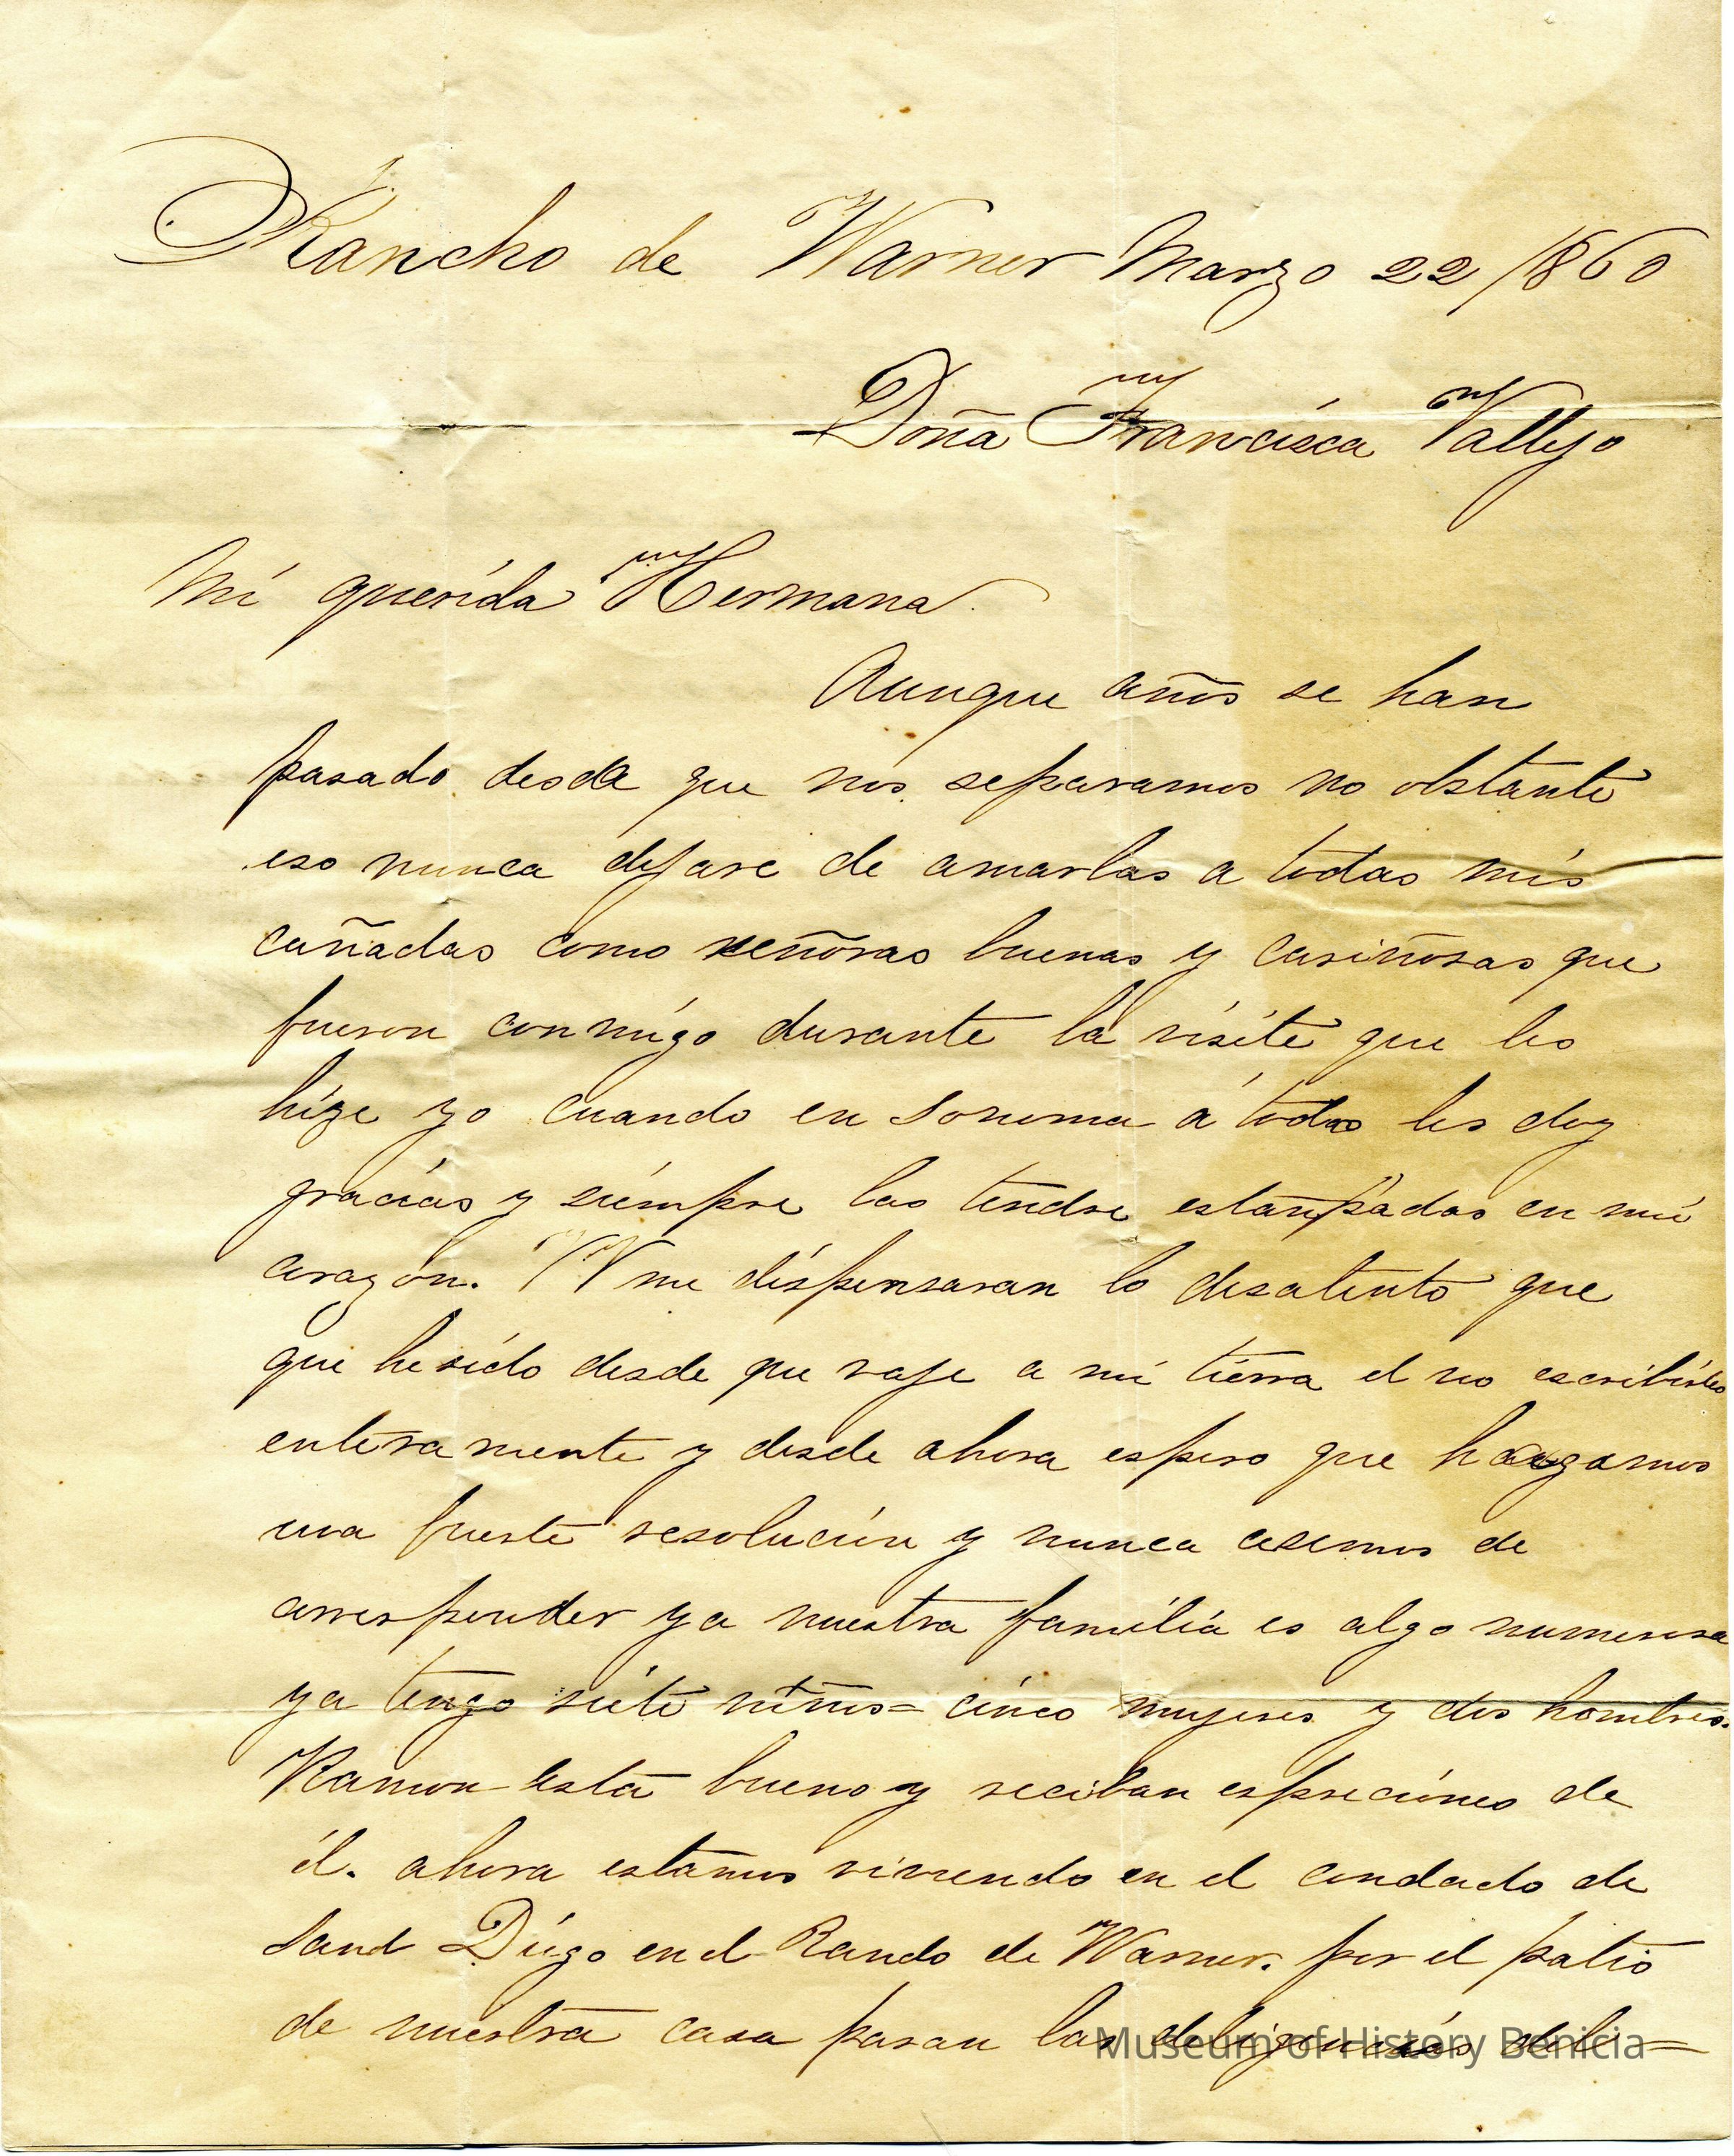 Rancho de Warner Marzo 22/1860
Doña Francisca Vallejo
Mi querida Hermana.
Aunque años se han
pasado desde que nos separamos no obstante
eso nunca dejare de amarlas a todas mis
cuñadas como señoras buenas y cariñosas que
fueron conmigo durante la visite que les
hize yo cuando en Sonoma á todas les doy
gracias y siempre las tendre estampadas en mi
corazón. VV me dispensaran lo desatento que
que he sido desde que vaje a mi tierra el no escribirles
enteramente y desde ahora espero que hagamos
una fuerte resolución y nunca cesemos de
corresponder ya nuestra familia es algo numerosa
ya tengo siete niños = cinco mujeres y dos hombres.
Ramon está bueno y reciban espreciónes de
él. ahora estamos viviendo en el condado de
Sand Diego en el Rancho de Warner. por el patio
de nuestra casa pasan las deligencias del
Museum of History Benicia